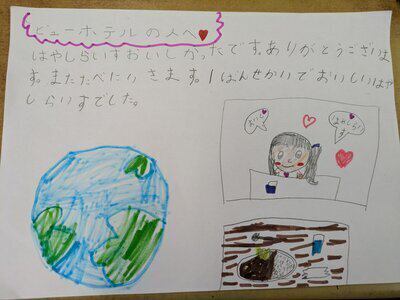 ビューホテルの人へ♥
はやしらいすおいしかったです。ありがとうございま
す。またたべにいきます。1ばんせかいでおいしいはや
しらいすでした。
はやしらい
す